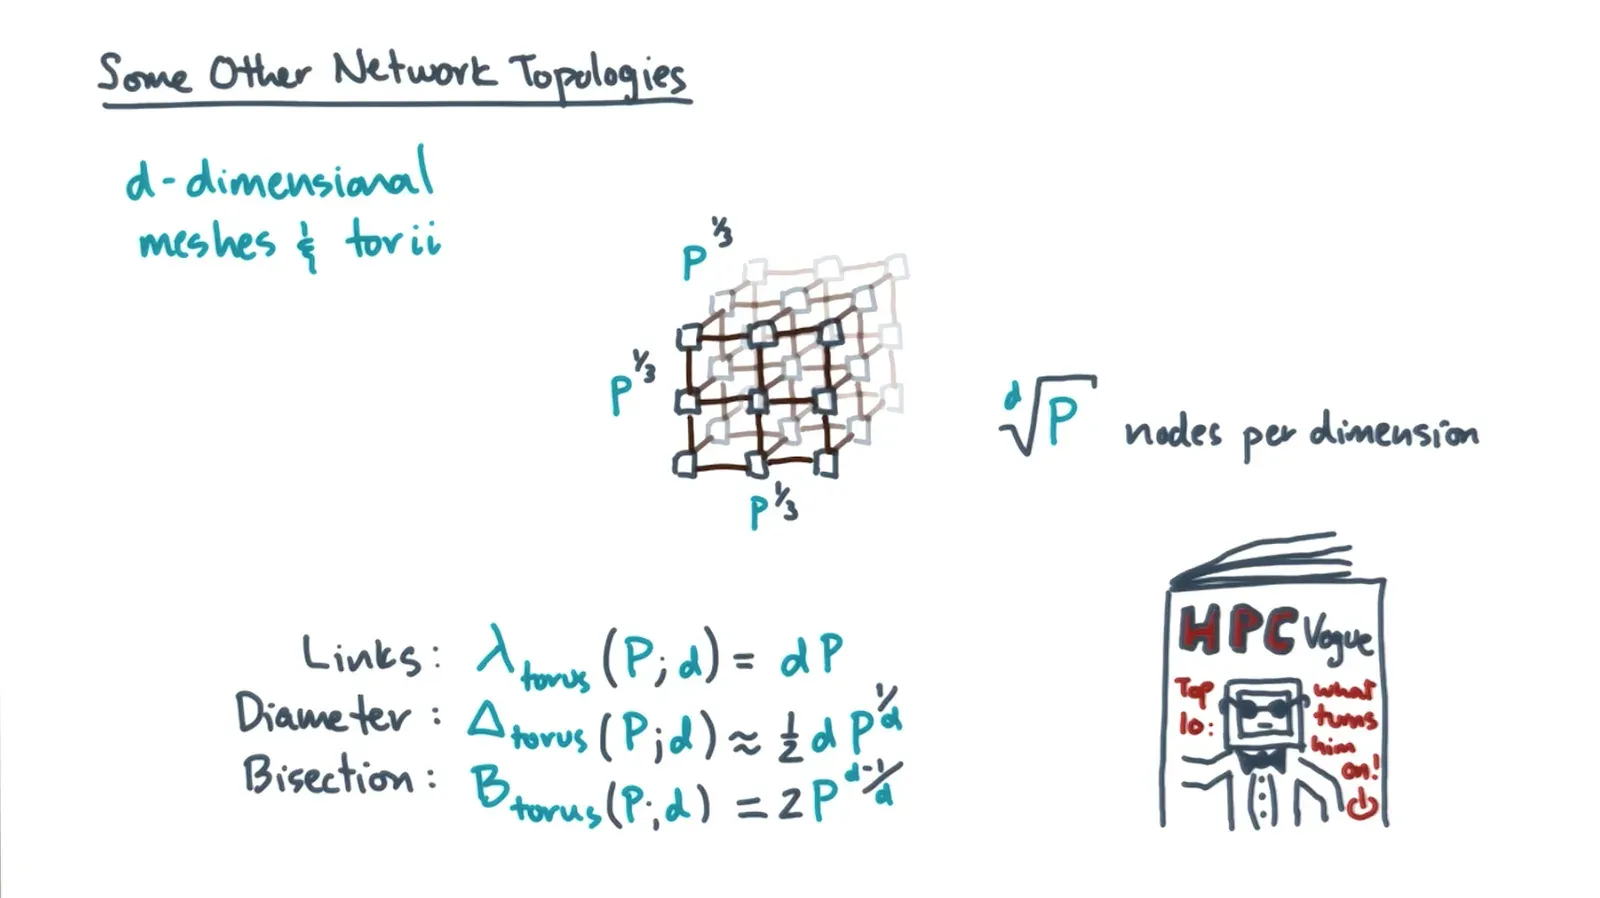 Some Other Network Topologies
d-dimensional
meshes & torii
P^1/3
P^1/3
P^1/3
d√P nodes per dimension
Links: λ_torus (P; d) = dP
Diameter: Δ_torus (P; d) ≈ 1/2 d P^1/d
Bisection: B_torus (P; d) = 2 P^d-1/d
HPC Vogue
Top
10:
what
turns
him
on!